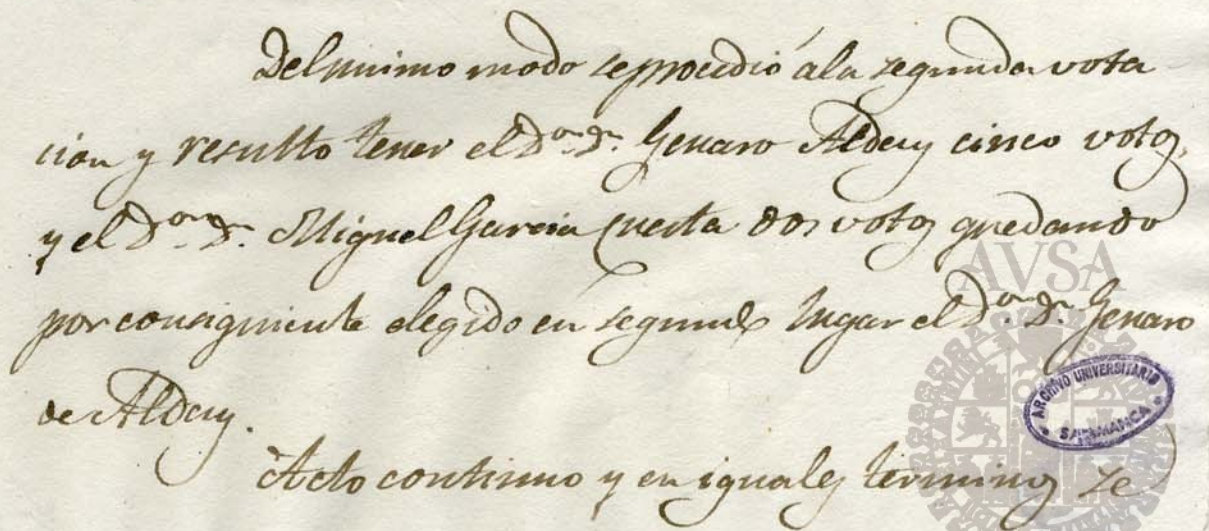 Del mimo modo se procedió a la segunda vota
cion y resulto tener el Dor. Dn. Genaro Alday cinco votos,
y el Dor. Dn. Miguel Garcia Cuesta dos votos quedando
por consiguiente elegido en segundo lugar el Dor. Dn. Genaro
de Alday.
Acto continuo y en iguales terminos se
AVSA
ARCHIVO UNIVERSITARIO
SALAMANCA